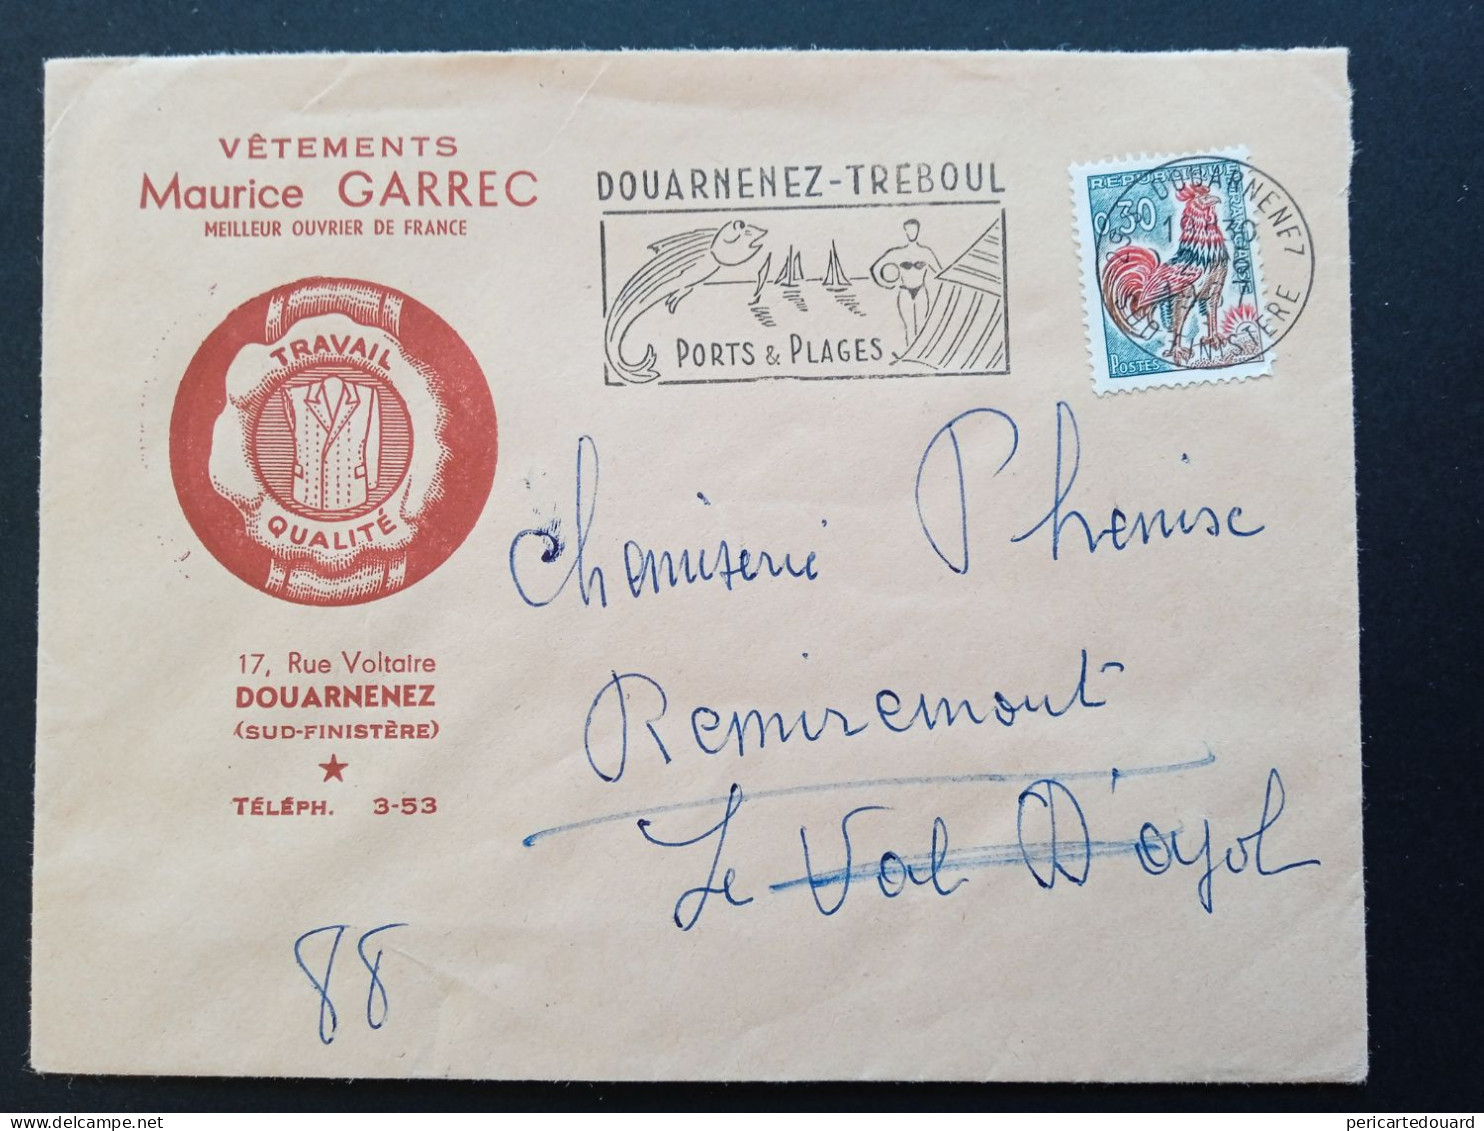 VÊTEMENTS
Maurice GARREC
MEILLEUR OUVRIER DE FRANCE
TRAVAIL
QUALITÉ
17, Rue Voltaire
DOUARNENEZ
(SUD-FINISTÈRE)
★
TÉLÉPH. 3-53
DOUARNENEZ-TREBOUL
PORTS & PLAGES
0,30
POSTES
DOUARNENEZ
FINISTÈRE
Chemiserie Phenix
Remiremont
Le Val D'ajol
88
pericartedouard